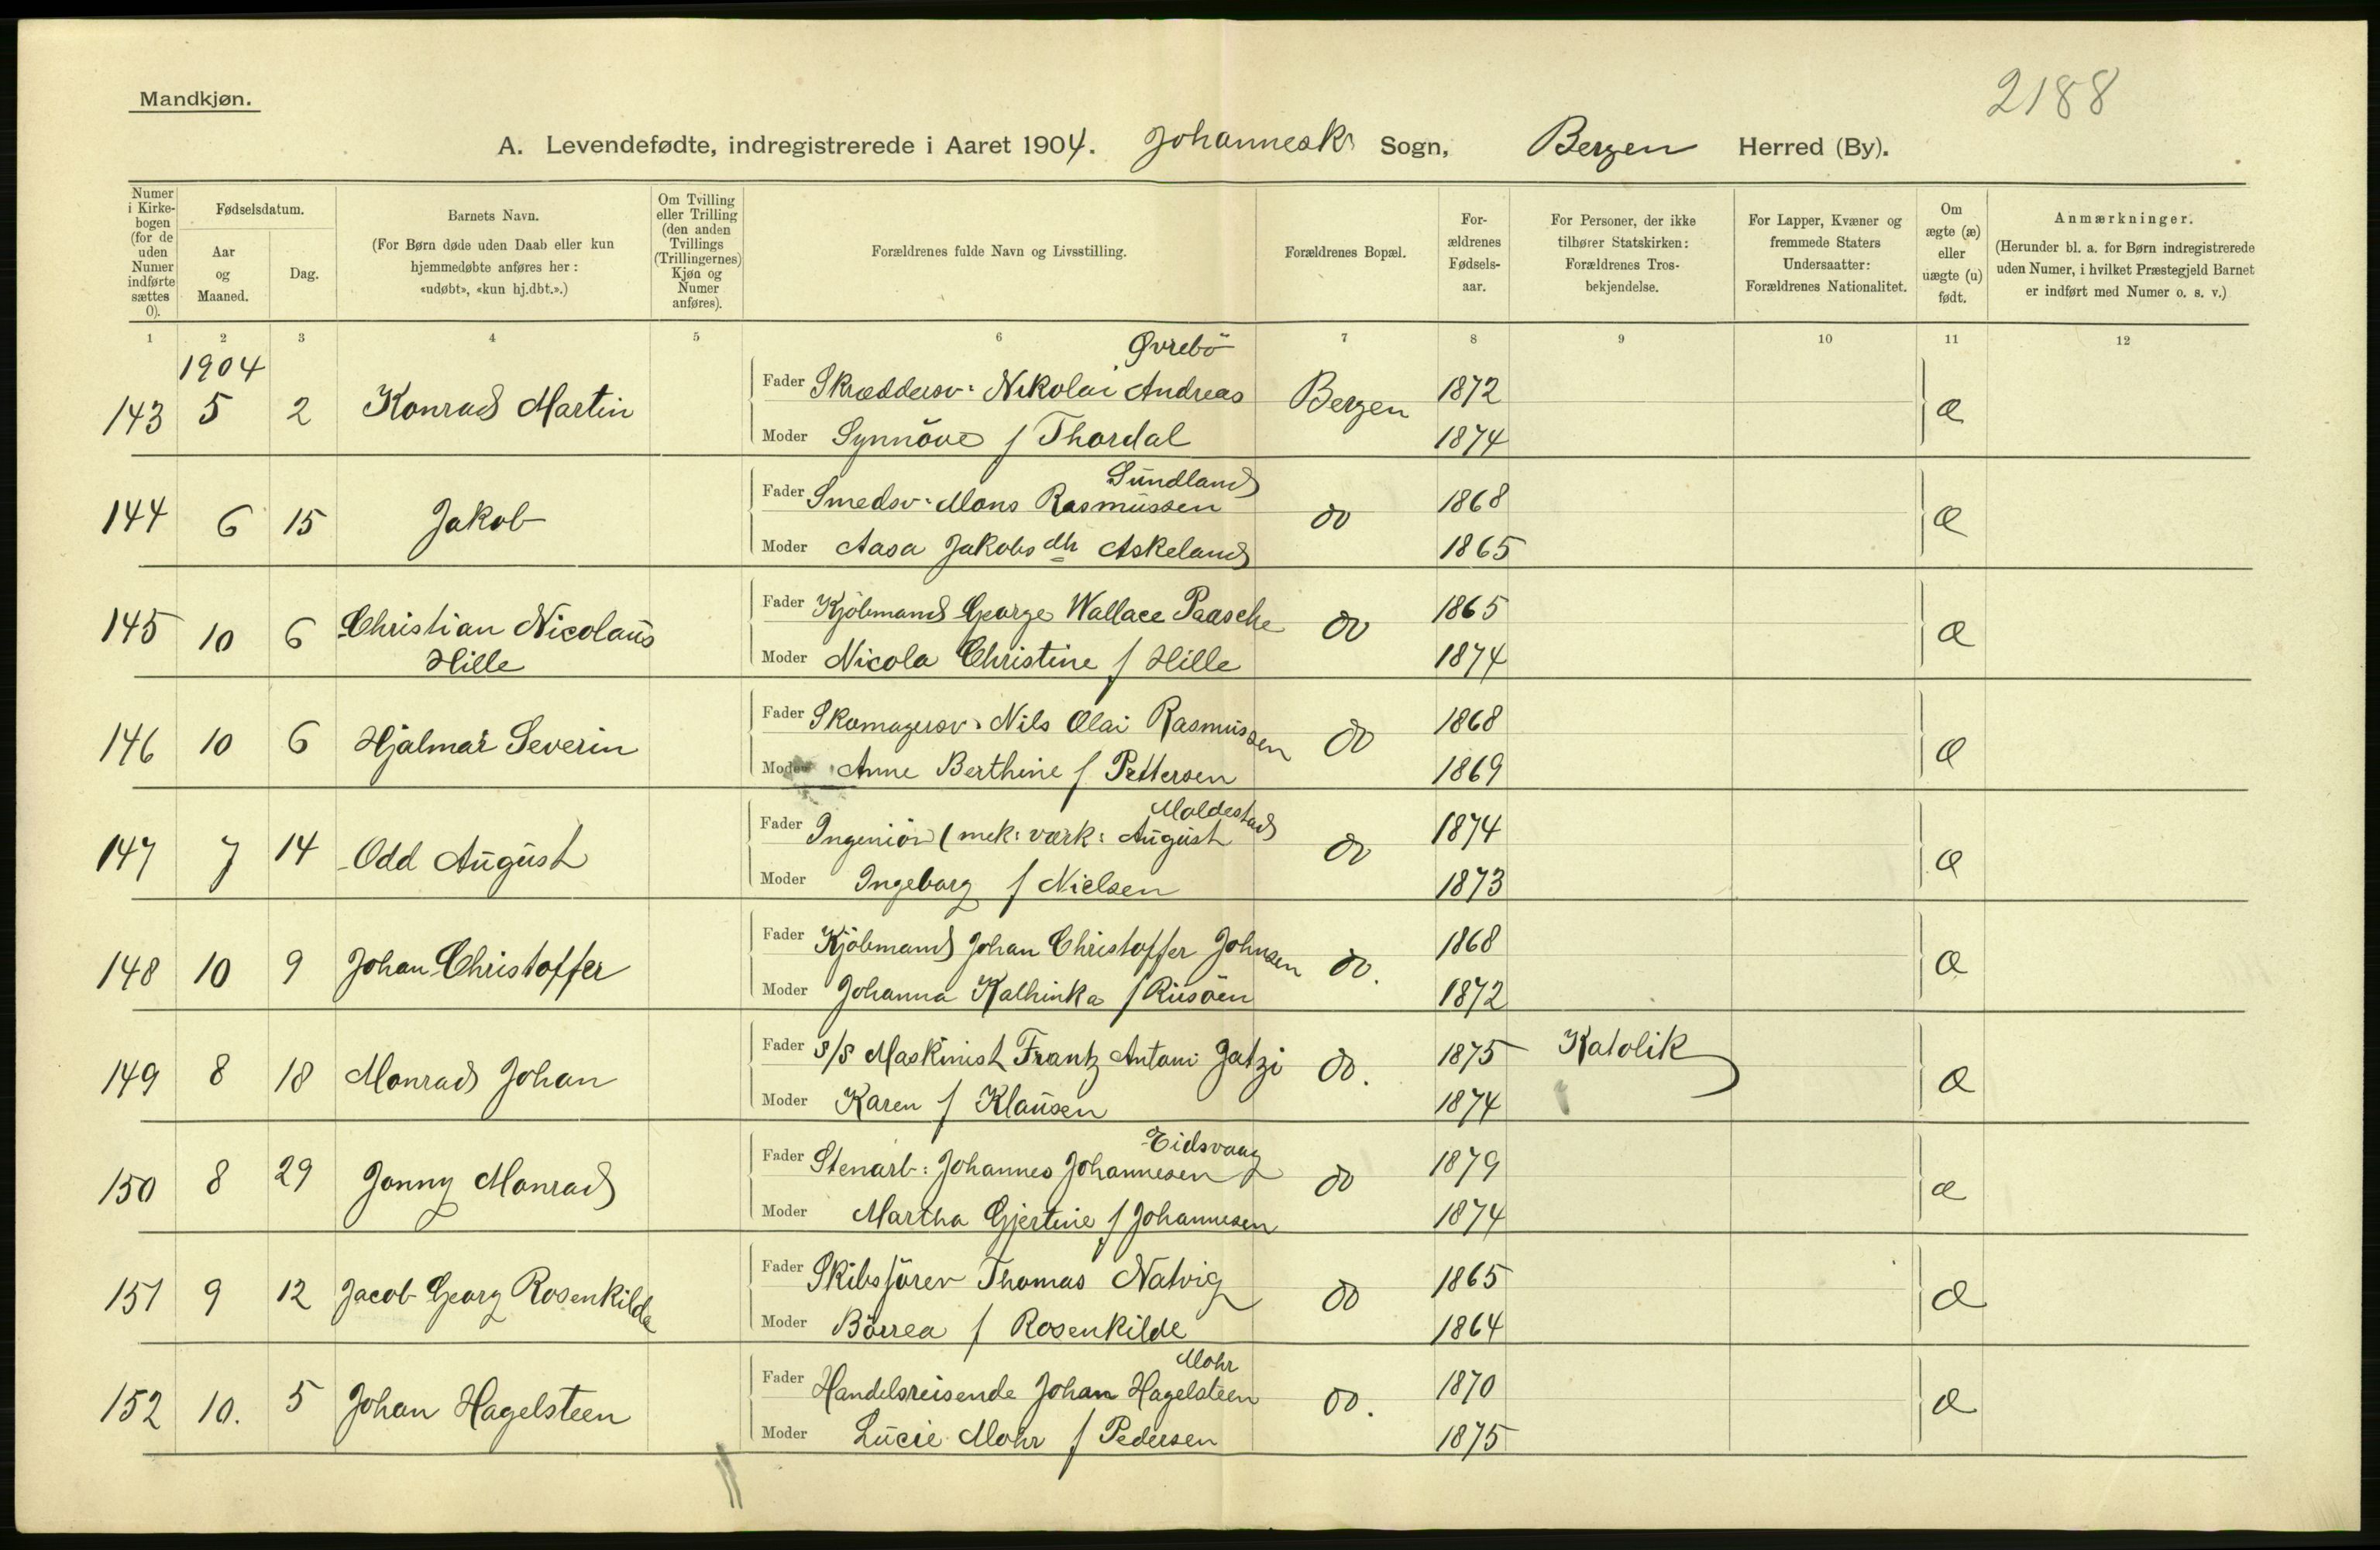 2188
Mandkjøn.
A. Levendefødte, indregistrerede i Aaret 1904. Johannesk Sogn, Bergen Herred (By).
Numer i Kirke-bogen (for de uden Numer indførte sættes 0).
Fødselsdatum.
Aar og Maaned.
Dag.
Barnets Navn.
(For Børn døde uden Daab eller kun
hjemmedøbte anføres her:
«udøbt», «kun hj.dbt.».)
Om Tvilling eller Trilling (den anden Tvillings (Trillingernes) Kjøn og Numer anføres).
Forældrenes fulde Navn og Livsstilling.
Forældrenes Bopæl.
For-ældrenes Fødsels-aar.
For Personer, der ikke
tilhører Statskirken:
Forældrenes Tros-
bekjendelse.
For Lapper, Kvæner og
fremmede Staters
Undersaatter:
Forældrenes Nationalitet.
Om ægte (æ) eller uægte (u) født.
Anmærkninger.
(Herunder bl. a. for Børn indregistrerede
uden Numer, i hvilket Præstegjeld Barnet
er indført med Numer o. s. v.)
1 2 3 4 5 6 7 8 9 10 11 12
1904
Øvrebö
143 5 2 Konrad Martin Fader Skræddersv: Nikolai Andreas Bergen 1872 æ
Moder Synnöve f Thordal 1874
Sundland
144 6 15 Jakob Fader Smedsv: Mons Rasmussen do 1868 æ
Moder Aasa Jakobsdtr Askeland 1865
145 10 6 Christian Nicolaus Fader Kjöbmand George Wallace Paasche do 1865 æ
Hille Moder Nicola Christine f Hille 1874
146 10 6 Hjalmar Severin Fader Skomagersv: Nils Olai Rasmussen do 1868 æ
Moder Anne Berthine f Pettersen 1869
Moldestad
147 7 14 Odd August Fader Ingeniör (mek: værk: August do 1874 æ
Moder Ingeborg f Nielsen 1873
148 10 9 Johan Christoffer Fader Kjöbmand Johan Christoffer Johnsen do. 1868 æ
Moder Johanna Kathinka f Riisöen 1872
149 8 18 Monrad Johan Fader S/S Maskinist Frantz Antoni Jatzi do. 1875 Katolik æ
Moder Karen f Klausen 1874
Eidsvaag
150 8 29 Jonny Monrad Fader Stenarb: Johannes Johannesen do 1879 æ
Moder Martha Gjertine f Johannesen 1874
151 9 12 Jacob Georg Rosenkilde Fader Skibsförer Thomas Natvig do 1865 æ
Moder Börrea f Rosenkilde 1864
Mohr
152 10. 5 Johan Hagelsteen Fader Handelsreisende Johan Hagelsteen do. 1870 æ
Moder Lucie Mohr f Pedersen 1875